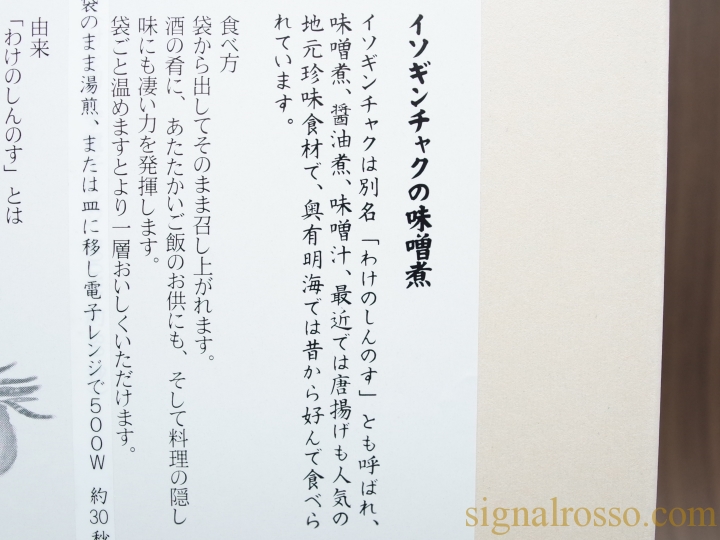 イソギンチャクの味噌煮
イソギンチャクは別名「わけのしんのす」とも呼ばれ、
味噌煮、醤油煮、味噌汁、最近では唐揚げも人気の
地元珍味食材で、奥有明海では昔から好んで食べら
れています。
食べ方
袋から出してそのまま召し上がれます。
酒の肴に、あたたかいご飯のお供にも、そして料理の隠し
味にも凄い力を発揮します。
袋ごと温めますとより一層おいしくいただけます。
袋のまま湯煎、または皿に移し電子レンジで500W 約30秒
由来
「わけのしんのす」とは
signalrosso.com